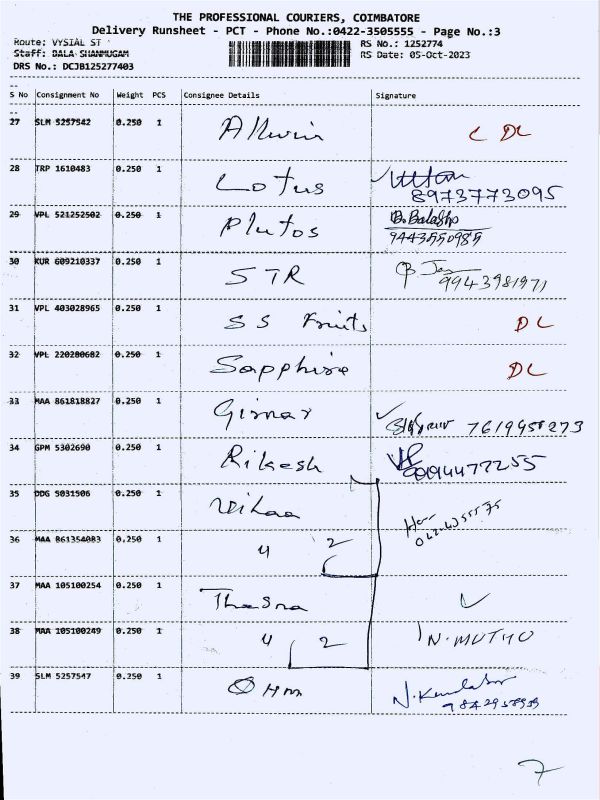 THE PROFESSIONAL COURIERS, COIMBATORE
Delivery Runsheet - PCT - Phone No.:0422-3505555 - Page No.:3
Route: VYSIAL ST RS No.: 1252774
Staff: BALA SHANMUGAM RS Date: 05-Oct-2023
DRS No.: DCJB125277403
S No Consignment No Weight PCS Consignee Details Signature
27 SLM 5257542 0.250 1 C DL
28 TRP 1610483 0.250 1 Lotus
8973773095
29 VPL 521252502 0.250 1 Plutos
9443550985
30 KUR 609210337 0.250 1 STR 9943981971
31 VPL 403028965 0.250 1 SS Fruits DL
32 VPL 220280682 0.250 1 Sapphire DL
33 MAA 861818827 0.250 1 Girnar
34 GPM 5302690 0.250 1 Rikesh
35 DDG 5031506 0.250 1
36 MAA 861354083 0.250 1 4 2
37 MAA 105100254 0.250 1
38 MAA 105100249 0.250 1 4 2 N. MUTHU
39 SLM 5257547 0.250 1 Ohm
7